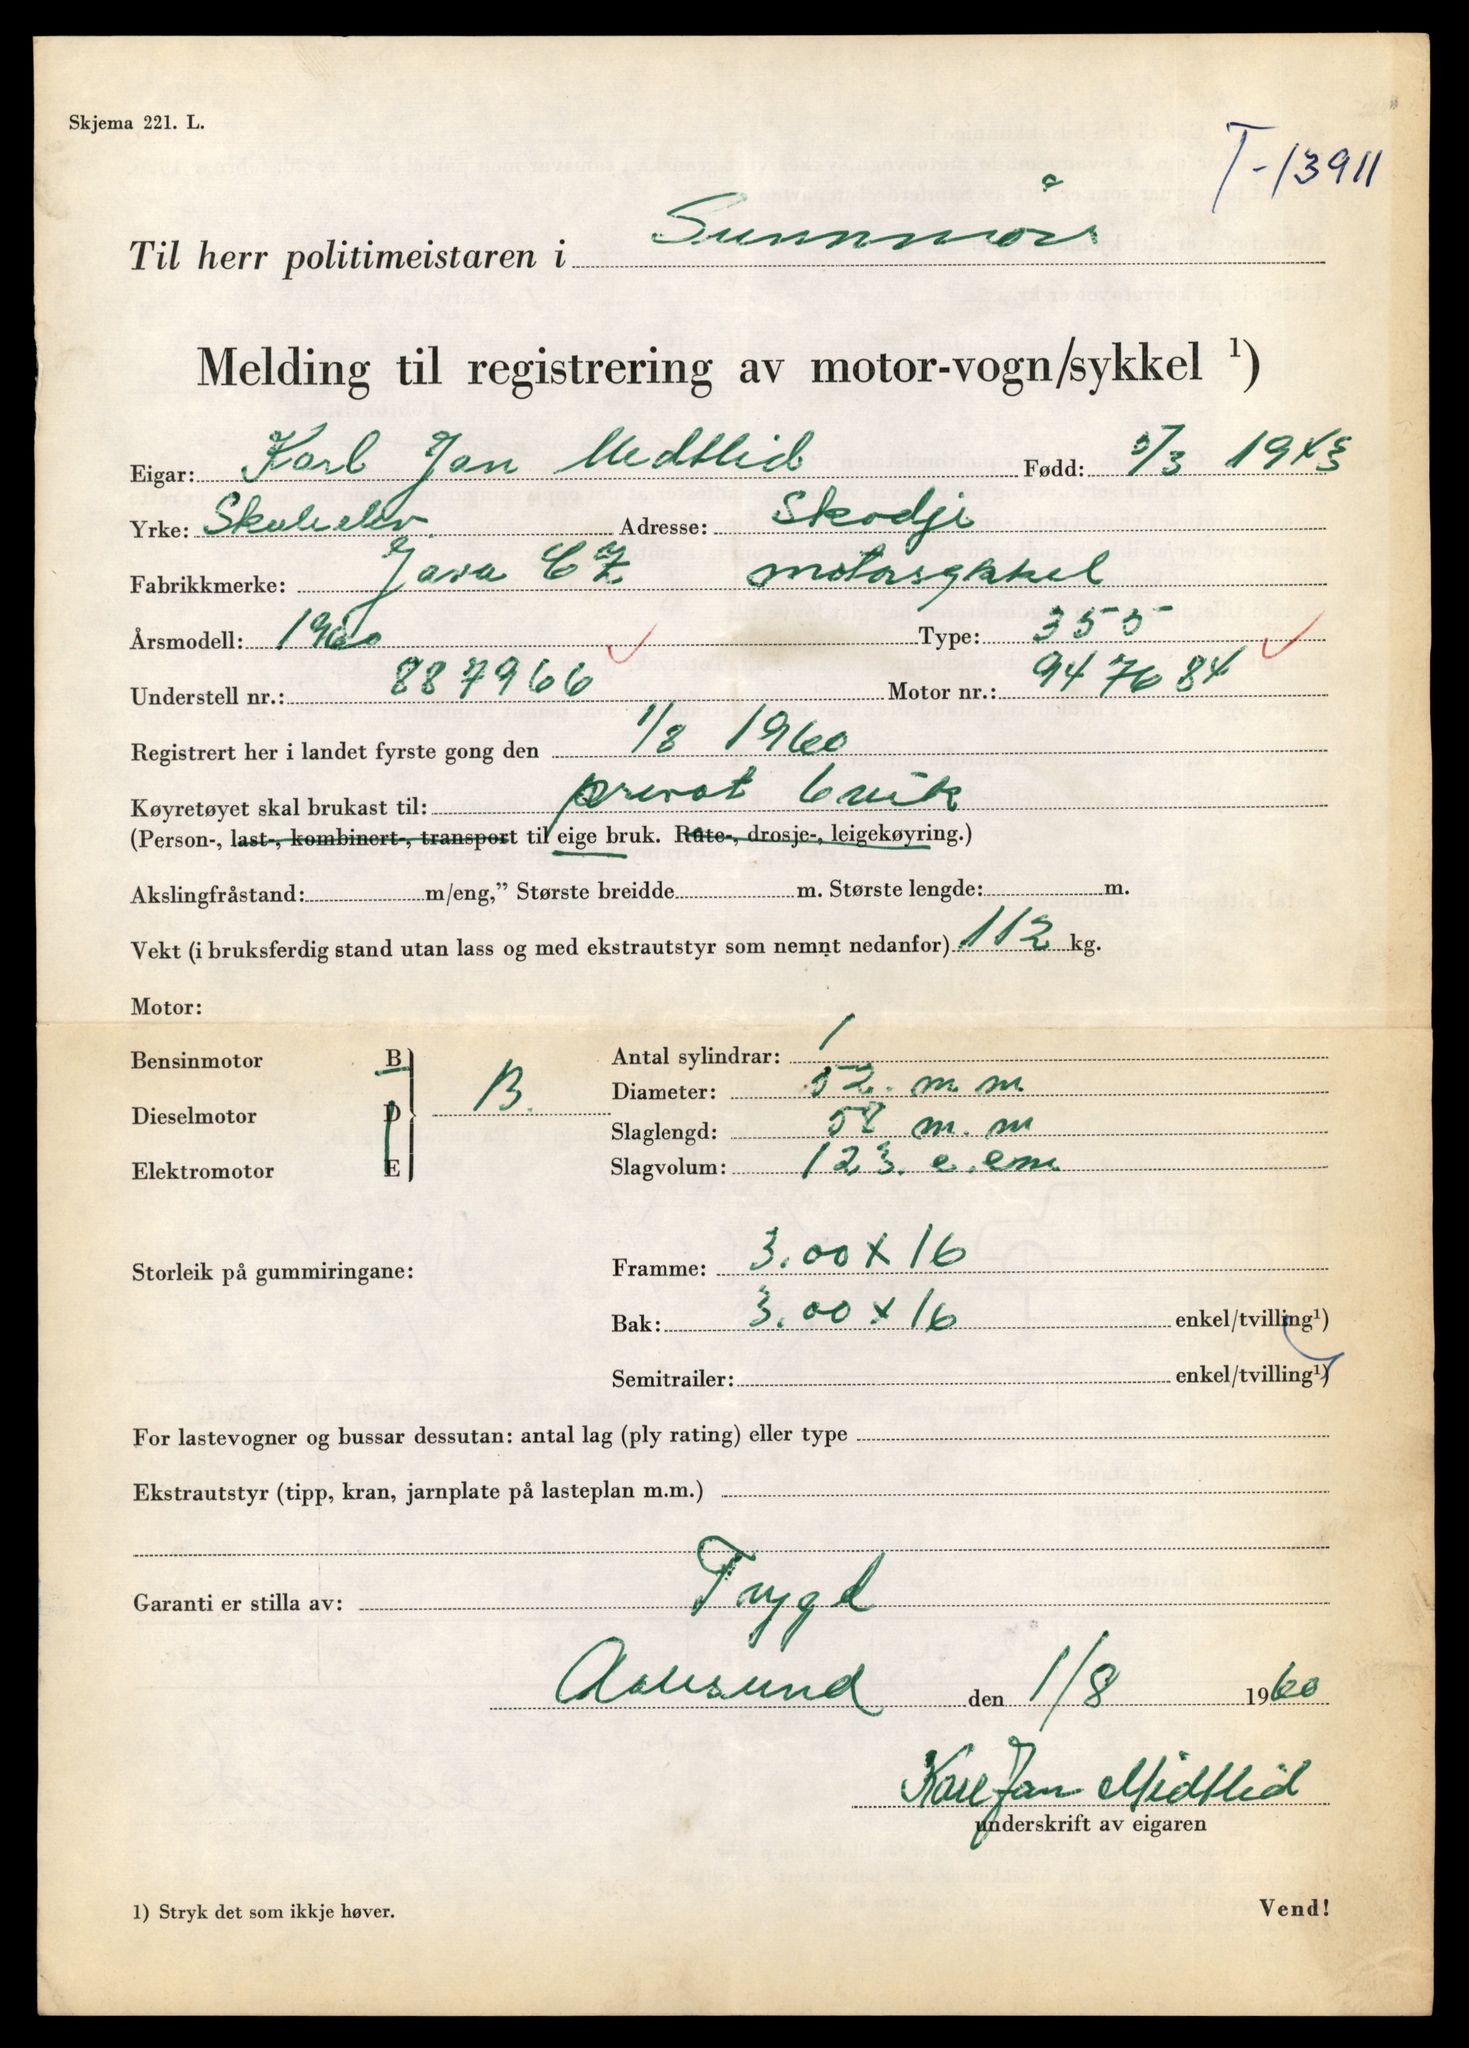 Skjema 221. L.
T-13911
Til herr politimeistaren i Sunnmøre
Melding til registrering av motor-vogn/sykkel ¹)
Eigar: Karl Jan Midtlid Fødd: 5/3 1943
Yrke: Skuleelev. Adresse: Skodje
Fabrikkmerke: Java CZ motorsykkel
Årsmodell: 1960 Type: 355
Understell nr.: 887966 Motor nr.: 947684
Registrert her i landet fyrste gong den 1/8 1960
Køyretøyet skal brukast til: privat bruk
(Person-, last-, kombinert-, transport til eige bruk. Rute-, drosje-, leigekøyring.)
Akslingfråstand: m/eng,” Største breidde m. Største lengde: m.
Vekt (i bruksferdig stand utan lass og med ekstrautstyr som nemnt nedanfor) 112 kg.
Motor:
Bensinmotor B B. Antal sylindrar: 1
Diameter: 52. m m
Dieselmotor D
Slaglengd: 58 m. m
Elektromotor E Slagvolum: 123. c. cm
Storleik på gummiringane: Framme: 3.00 x 16
Bak: 3.00 x 16 enkel/tvilling¹)
Semitrailer: enkel/tvilling¹)
For lastevogner og bussar dessutan: antal lag (ply rating) eller type
Ekstrautstyr (tipp, kran, jarnplate på lasteplan m.m.)
Garanti er stilla av: Trygd
Aalesund den 1/8 1960
Karl Jan Midtlid
underskrift av eigaren
1) Stryk det som ikkje høver.
Vend!